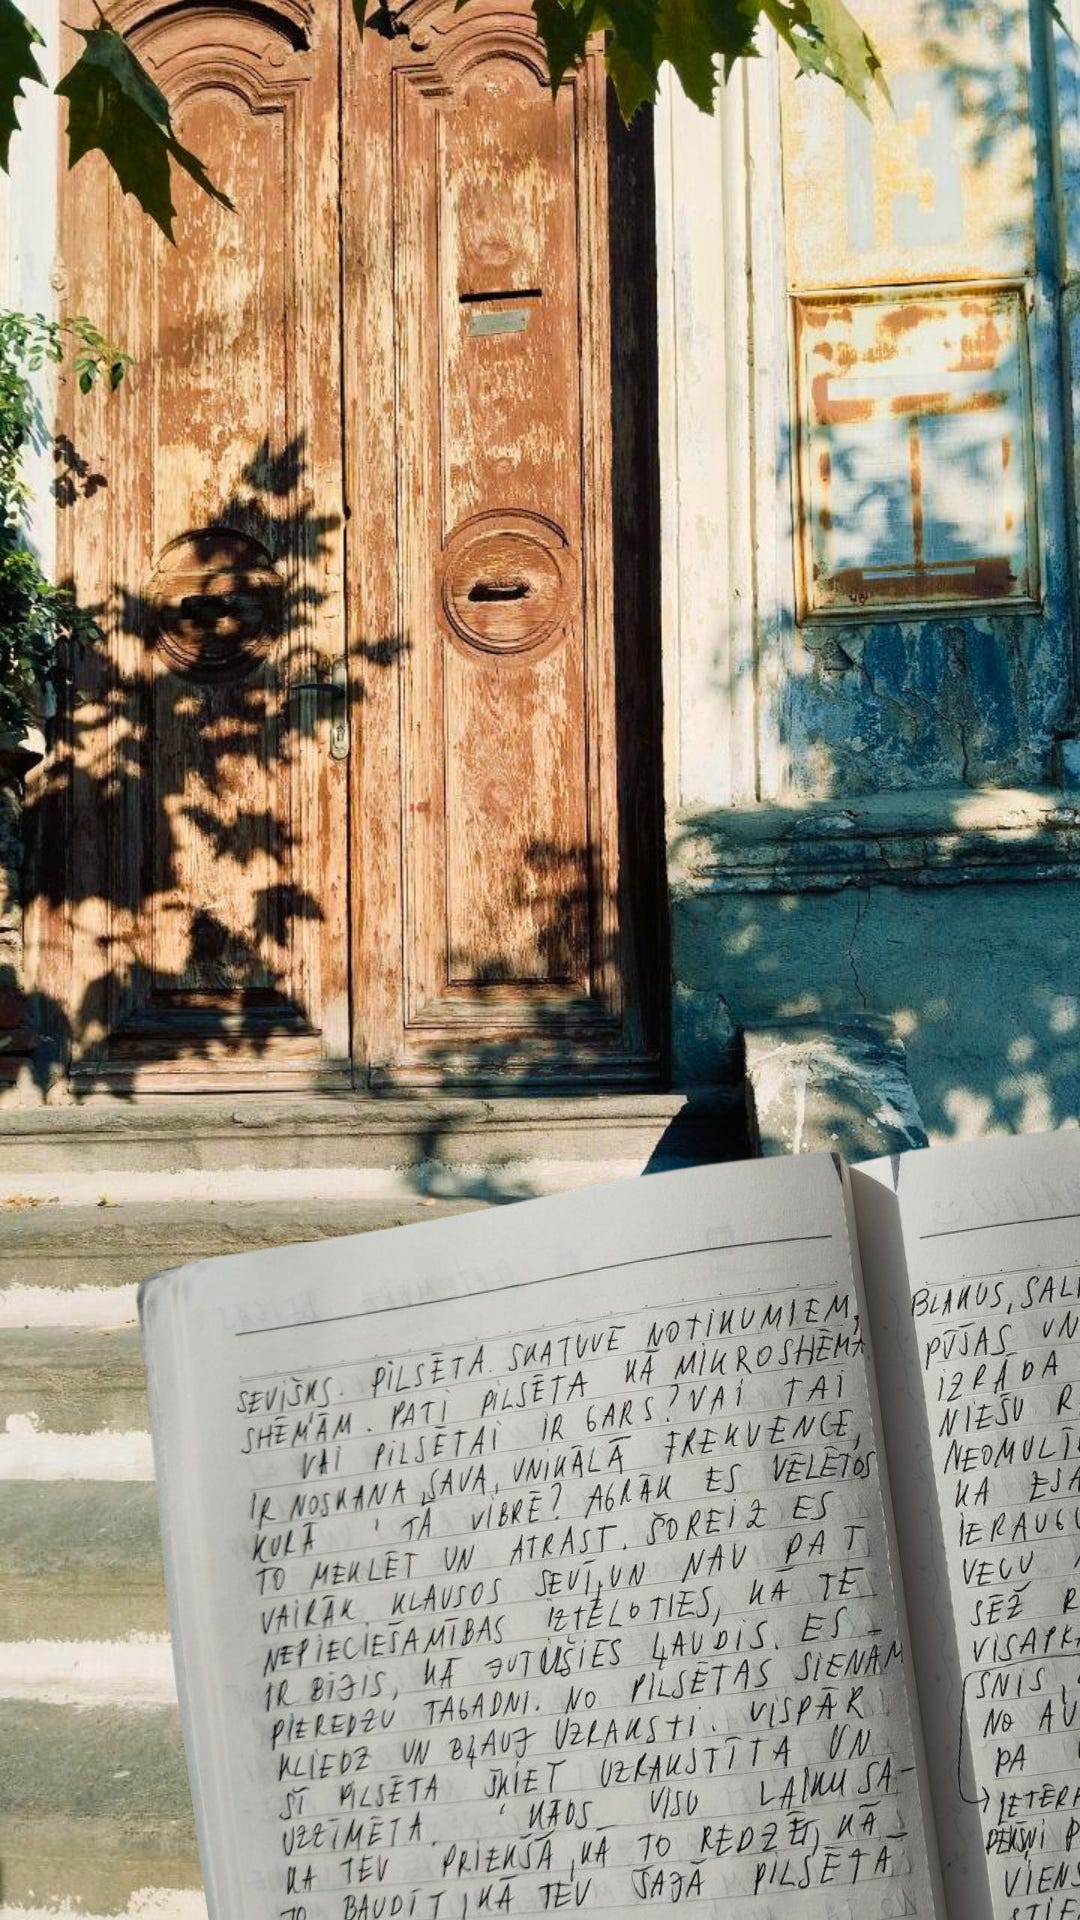 13
SEVIŠĶS. PILSĒTA. SKATUVE NOTIKUMIEM,
SHĒMĀM. PATI PILSĒTA KĀ MIKROSHĒMA
VAI PILSĒTAI IR GARS? VAI TAI
IR NOSKAŅA, SAVA, UNIKĀLĀ FREKVENCE,
KURĀ TĀ VIBRĒ? AGRĀK ES VĒLĒTOS
TO MEKLĒT UN ATRAST. ŠOREIZ ES
VAIRĀK KLAUSOS SEVĪ, UN NAV PAT
NEPIECIEŠAMĪBAS IZTĒLOTIES, KĀ TE
IR BIJIS, KĀ JUTUŠIES ĻAUDIS. ES
PIEREDZU TAGADNI. NO PILSĒTAS SIENĀM
KLIEDZ UN BĻAUJ UZRAKSTI. VISPĀR
ŠĪ PILSĒTA ŠĶIET UZRAKSTĪTA UN
UZZĪMĒTA. KĀDS VISU LAIKU SA-
KA TEV PRIEKŠĀ, KĀ TO REDZĒT, KĀ
TO BAUDĪT, KĀ TEV ŠAJĀ PILSĒTĀ
BLAKUS, SAL
PŪŠAS UN
IZRĀDA
NIEŠU R
NEOMULĪ
KA ESA
IERAUGU
VECU
SĒŽ R
VISAPKĀ
SNIS,
NO AU
PA
IETĒR
PĒKŠŅI P
VIENS
STIE